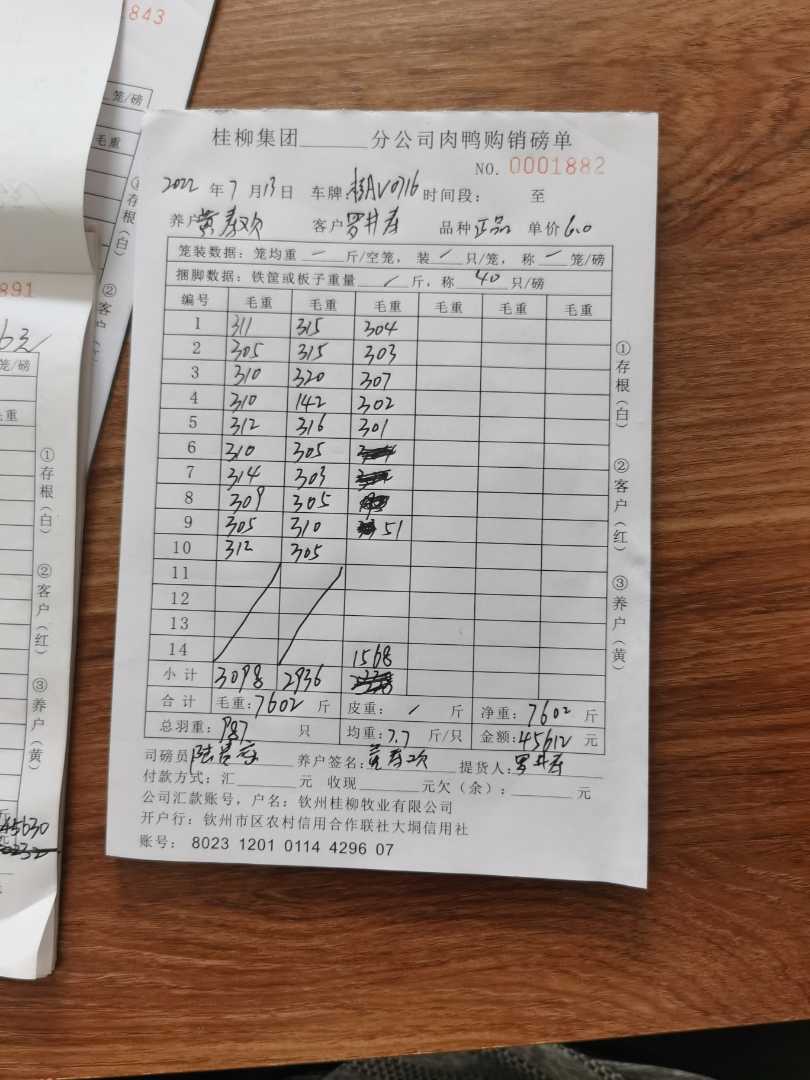 843
笼/磅
毛重
存根(白)
②客户
891
6元
笼/磅
毛重
①存根(白)
②客户(红)
③养户(黄)
45630
桂柳集团 分公司肉鸭购销磅单
NO. 0001882
2022年7月13日 车牌: AV0716 时间段: 至
养户 黄春欢 客户 罗井存 品种 正品 单价 6.0
笼装数据: 笼均重 一 斤/空笼, 装 / 只/笼, 称 一 笼/磅
捆脚数据: 铁筐或板子重量 / 斤, 称 40 只/磅
编号 毛重 毛重 毛重 毛重 毛重 毛重
1 311 315 304
2 305 315 303
3 310 320 307
4 310 142 302
5 312 316 301
6 310 305
7 314 303
8 309 305
9 305 310 51
10 312 305
11
12
13
14 1568
小计 3098 2936
合计 毛重: 7602 斤 皮重: / 斤 净重: 7602 斤
总羽重: 987 只 均重: 7.7 斤/只 金额: 45612 元
司磅员 养户签名: 黄春欢 提货人: 罗井存
付款方式: 汇 元 收现 元欠(余): 元
公司汇款账号, 户名: 钦州桂柳牧业有限公司
开户行: 钦州市区农村信用合作联社大垌信用社
账号: 8023 1201 0114 4296 07
①存根(白)
②客户(红)
③养户(黄)